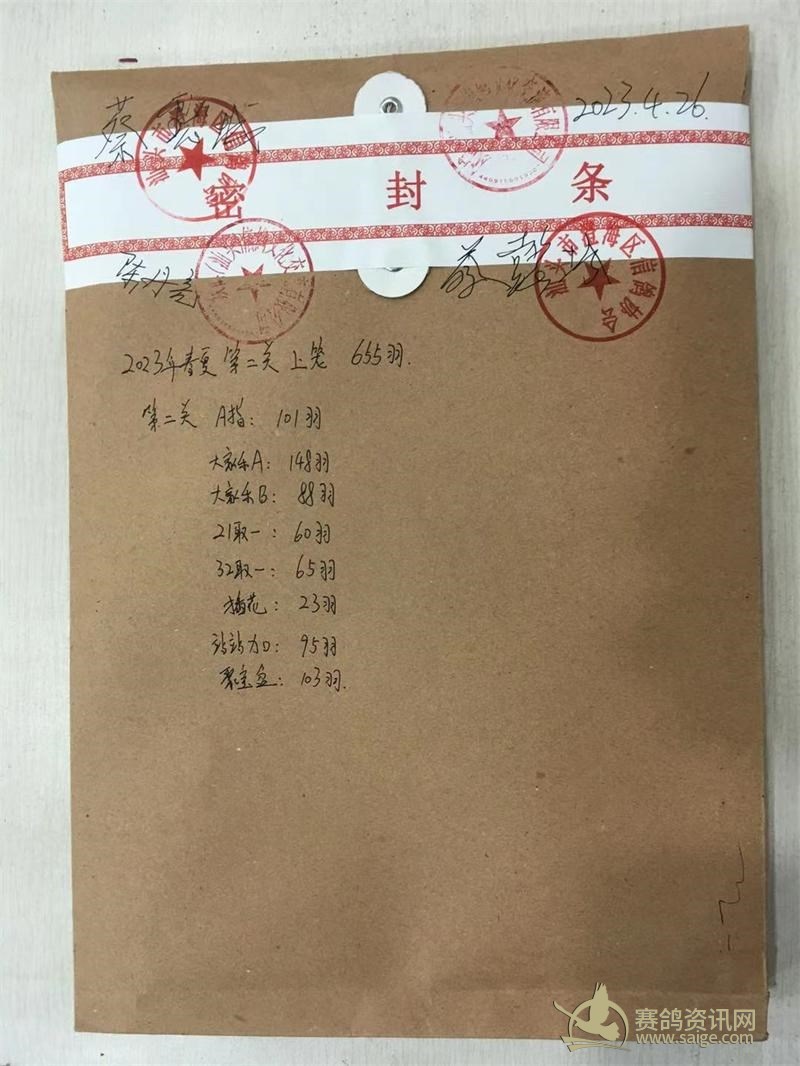 2023.4.26.
密封条
汕头市澄海区信鸽协会
2023年春夏 第二关 上笼 655羽.
第二关 A指: 101羽
大家乐A: 148羽
大家乐B: 88羽
21取一: 60羽
32取一: 65羽
梅花: 23羽
站站加: 95羽
聚宝盆: 103羽.
赛鸽资讯网
www.saige.com